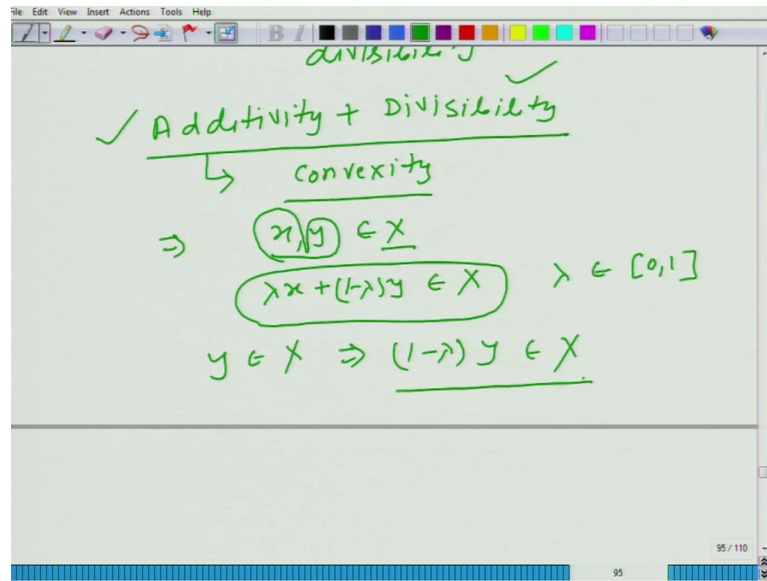 File Edit View Insert Actions Tools Help
B I
divisibility
✓ Additivity + Divisibility ✓
↳ Convexity
⇒ x, y ∈ X
λx + (1-λ)y ∈ X λ ∈ [0,1]
y ∈ X ⇒ (1-λ) y ∈ X
95 / 110
95